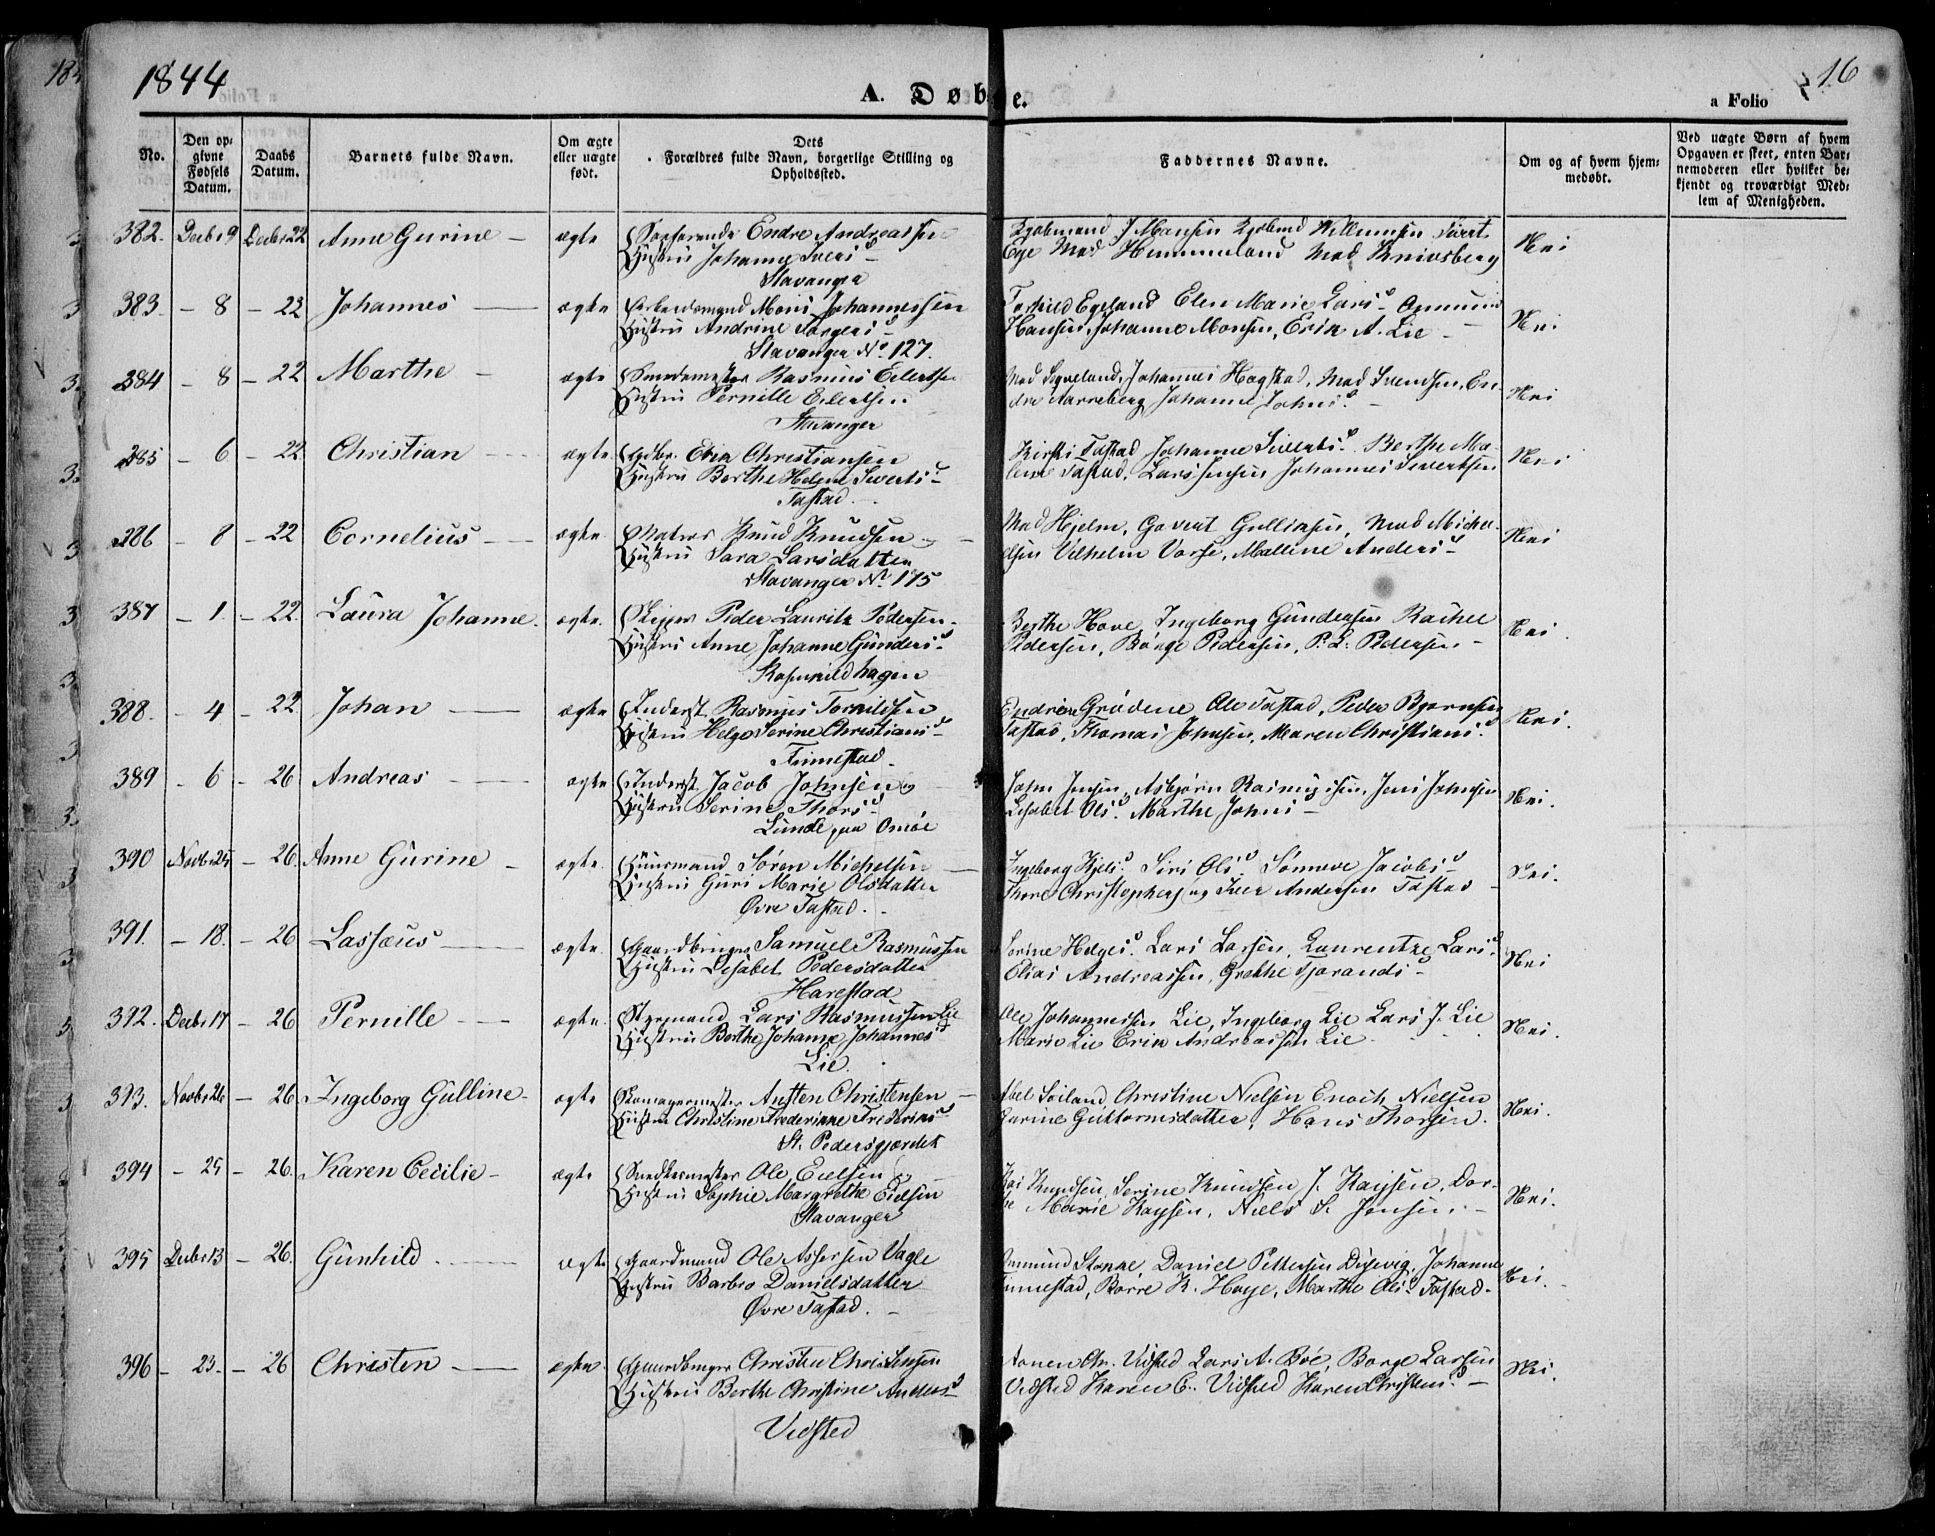 1844
A. Døbte.
a Folio
16
No.
Den opgivne Fødsels Datum.
Daabs Datum.
Barnets fulde Navn.
Om ægte eller uægte født.
Dets Forældres fulde Navn, borgerlige Stilling og Opholdssted.
Faddernes Navne.
Om og af hvem hjemmedøbt.
Ved uægte Børn af hvem Opgaven er skeet, enten Barnemoderen eller hvilket bekjendt og troværdigt Medlem af Menigheden.
382. Decbr 9 Decbr 22 Anne Gurine ægte Endre Andreassen
Hustru Johanne Iversd
Stavanger
Nei
383 8 23 Johannes ægte Arbeidsmand Mons Johannessen
Hustru Andrine Torgersd
Stavanger No. 127.
Torkild Egeland Elen Marie Larsd
Hansen, Johanne Monsen, Erik A. Lie
Nei
384 8 22 Marthe ægte Smedemester Rasmus Eilertsen
Hustru Pernille Eilertsen
Stavanger
Mad Sigveland, Johannes Hogstad, Mad Svendsen, En
dre Aarreberg Johanne Johnsd.
Nei
285 6 22 Christian ægte Christiansen
Hustru Berthe Helene Sivertsd
Tastad
Johanne Sivertsd. Berthe Ma
lene Tastad, Lars Jensen Johannes Sivertsen
Nei
286 8 22 Cornelius ægte Matros Knud Knudsen
Hustru Sara Larsdatter
Stavanger No. 175
Mad Hjelm, Govert Gullixsen, Mad Michel
elsen Vilhelm Vorse, Malline Andersd
Nei
387 1. 22. Laura Johanne ægte. Skipper Peder Lauritz Pedersen
Hustru Anne Johanne Gundersd.
Rosenkildhagen
Berthe Hove, Ingeborg Gundersen Rachel
Pedersen, Børge Pedersen, P. L. Pedersen
Nei
388 4 22 Johan ægte Inderst Rasmus Torkildsen
Hustru Helge Serine Christiansd
Finnestad
Endre Grødene Ole Tastad, Peder Bjørnsen
Tastad, Thomas Johnsen, Maren Christiansd.
Nei.
389 6 26 Andreas ægte Inderst Jacob Johnsen og
Hustru Serine Thorsd
Lunde paa Omøe
John Jensen, Asbjørn Rasmussen, Jens Johnsen
Lisabet Olsd. Marthe Johnsd
Nei.
390 Novbr 25 26. Anne Gurine ægte. Huusmand Søren Michelsen
Hustru Guri Marie Olsdatter
Øvre Tastad.
Ingeborg Kjelsd. Siri Olsd Sønneve Jacobsd
Thore Christophersen og Iver Andersen Tastad
Nei.
391. 18. 26 Lassæus ægte. Gaardbruger Samuel Rasmussen
Hustru Lisabet Pedersdatter
Harestad
Serine Helgesd. Lars Larsen, Laurentze Larsd.
Elias Andreassen, Grethe Tjorandsd
Nei
392. Decbr 17 26 Pernille ægte. Styrmand Lars Rasmussen Lie
Hustru Berthe Johanne Johannesd
Lie.
Ole Johannessen Lie, Ingeborg Lie Lars J. Lie
Marie Lie Erik Andreassen Lie
Nei.
393. Novbr 26 26. Ingeborg Gulline ægte Skomagermester Austen Christensen
Hustru Christine Frederikke Frederiksd
St. Pedersgjerdet
Abel Soiland Christine Nielsen Enoch Nielsen
Gurine Guttormsdatter, Hans Thorsen.
Nei.
394 25 26. Karen Cecilie ægte Snedkermester Ole Eielsen og
Hustru Sophie Margrethe Eielsen
Stavanger
Knudsen, Serine Knudsen J. Kaysen, Dor
Marie Kaysen, Niels S. Jensen.
Nei.
395 Decbr 13 26. Gunhild ægte Gaardmand Ole Assersen Vagle
Hustru Barbro Danielsdatter
Øvre Tastad.
Omund Stokke Daniel Pettersen Dusevig, Johanne
Finnestad, Børre K. Høye, Marthe Olsd. Tastad.
Nei.
396 23. 26 Christen ægte Gaardbruger Christen Christensen
Hustru Berthe Christine Andersd
Vidsted
Vidsted Lars A. Bøe, Borge Larsen
Vidsted Karen C. Vidsted Karen Christensd.
Nei.